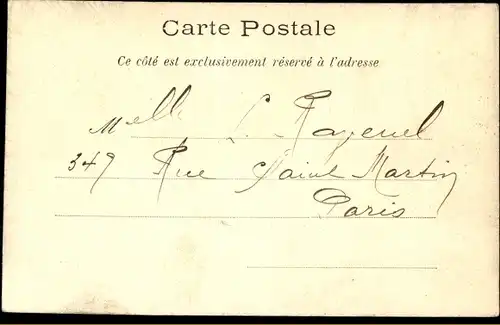 Carte Postale
Ce côté est exclusivement réservé à l'adresse
Melle L. Rayenel
349 Rue Saint Martin
Paris